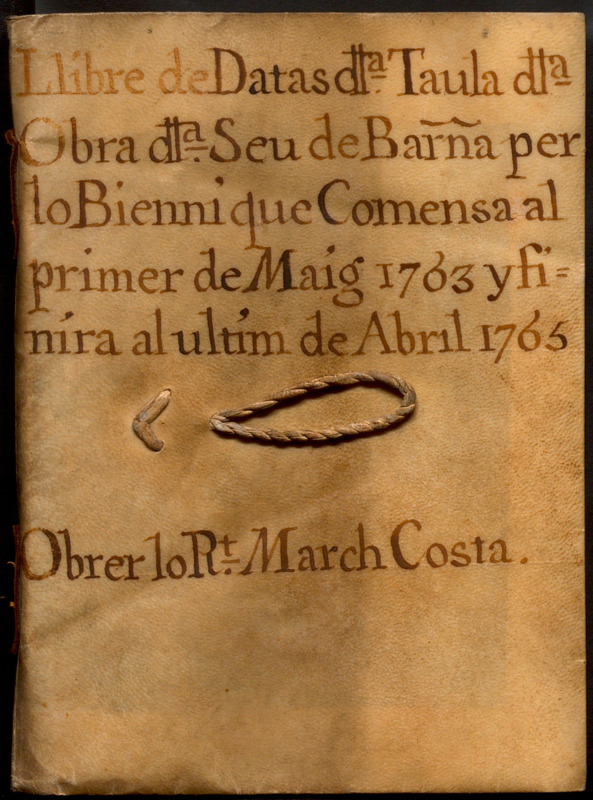 Llibre de Datas dl̵l̵ª. Taula dl̵l̵ª
Obra dl̵l̵ª. Seu de Bar̃ña per
lo Bienni que Comensa al
primer de Maig 1763 y fi=
nira al ultim de Abril 1765
Obrer lo Rt. March Costa.